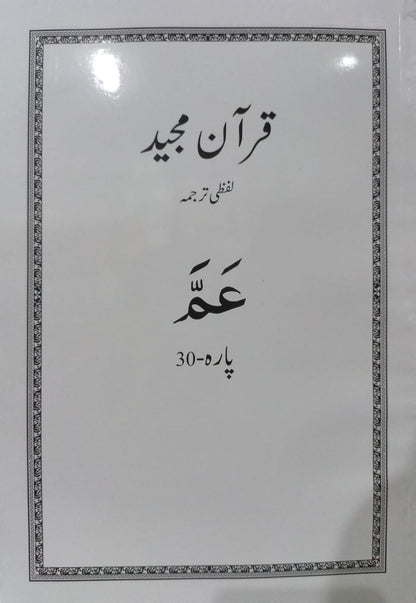 قرآن مجید
لفظی ترجمہ
عَمَّ
پارہ-30